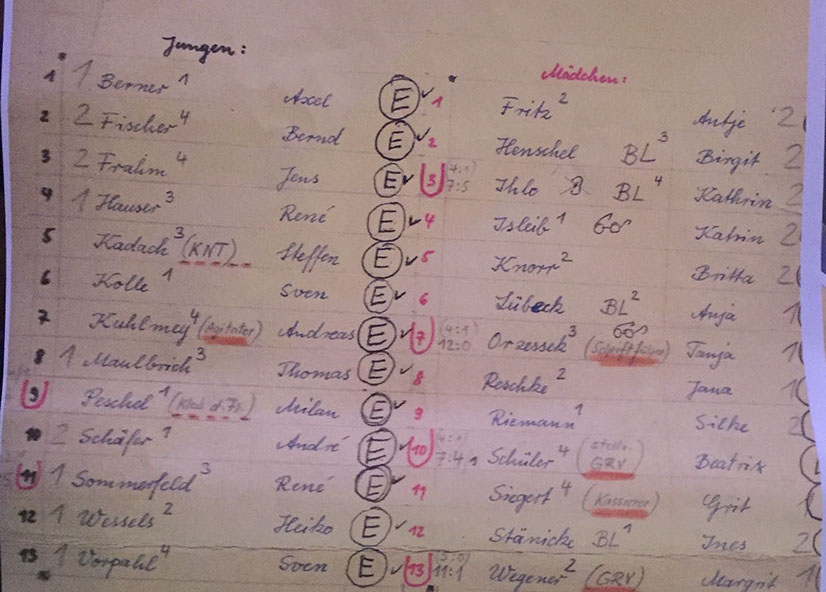 Jungen:
1 1 Berner 1 Axel E
2 2 Fischer 4 Bernd E
3 2 Frahm 4 Jens E
4 1 Hauser 3 René E
5 Kadach 3 (KNT) Steffen E
6 Kolle 1 Sven E
7 Kuhlmey 4 (Agitator) Andreas E
8 1 Maulbrich 3 Thomas E
9 Peschel 1 Milan E
10 2 Schäfer 1 André E
11 1 Sommerfeld 3 René E
12 1 Wessels 2 Heiko E
13 1 Vorpahl 4 Sven E
Mädchen:
1 Fritz 2 Antje 2
2 Henschel BL 3 Birgit 2
3 (4:1) 7:5 Ihlo BL 4 Kathrin 2
4 Isleib 1 Katrin 2
5 Knorr 2 Britta 2
6 Lübeck BL 2 Anja 1
7 (4:1) 12:0 Orzessek 3 (Schriftführer) Tanja 1
8 Reschke 2 Jana 1
9 Riemann 1 Silke 2
10 (4:1) 7:4 Schüler 4 (stellv. GRV) Beatrix
11 Siegert 4 (Kassierer) Grit
12 Stänicke BL 1 Ines 2
13 (5:0) 11:1 Wegener 2 (GRV) Margrit 1